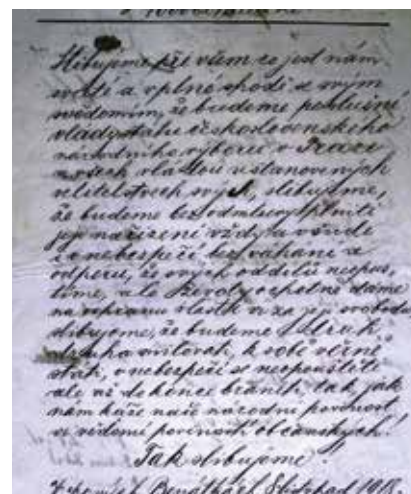 Slibujeme při všem co jest nám
svaté a v plné shodě se svým
svědomím, že budeme poslušni
vlády státu československého
národního výboru v Praze
a všech vládou ustanovených
velitelstvech svých, slibujeme,
že budeme bez odmluvy plniti
její nařízení vždy a všude
i v nebezpečí bez váhání a
odporu, že svých oddílů neopus-
tíme, ale životy ochotně dáme
na obranu vlasti a za její svobodu
slibujeme, že budeme druh
druha milovati, k sobě věrně
státi, v nebezpečí se neopouštěti
ale až do konce brániti, tak jak
nám káže naše národní povinnost
a vědomí povinností občanských!
Tak slibujeme!
Benátkách listopad 1918